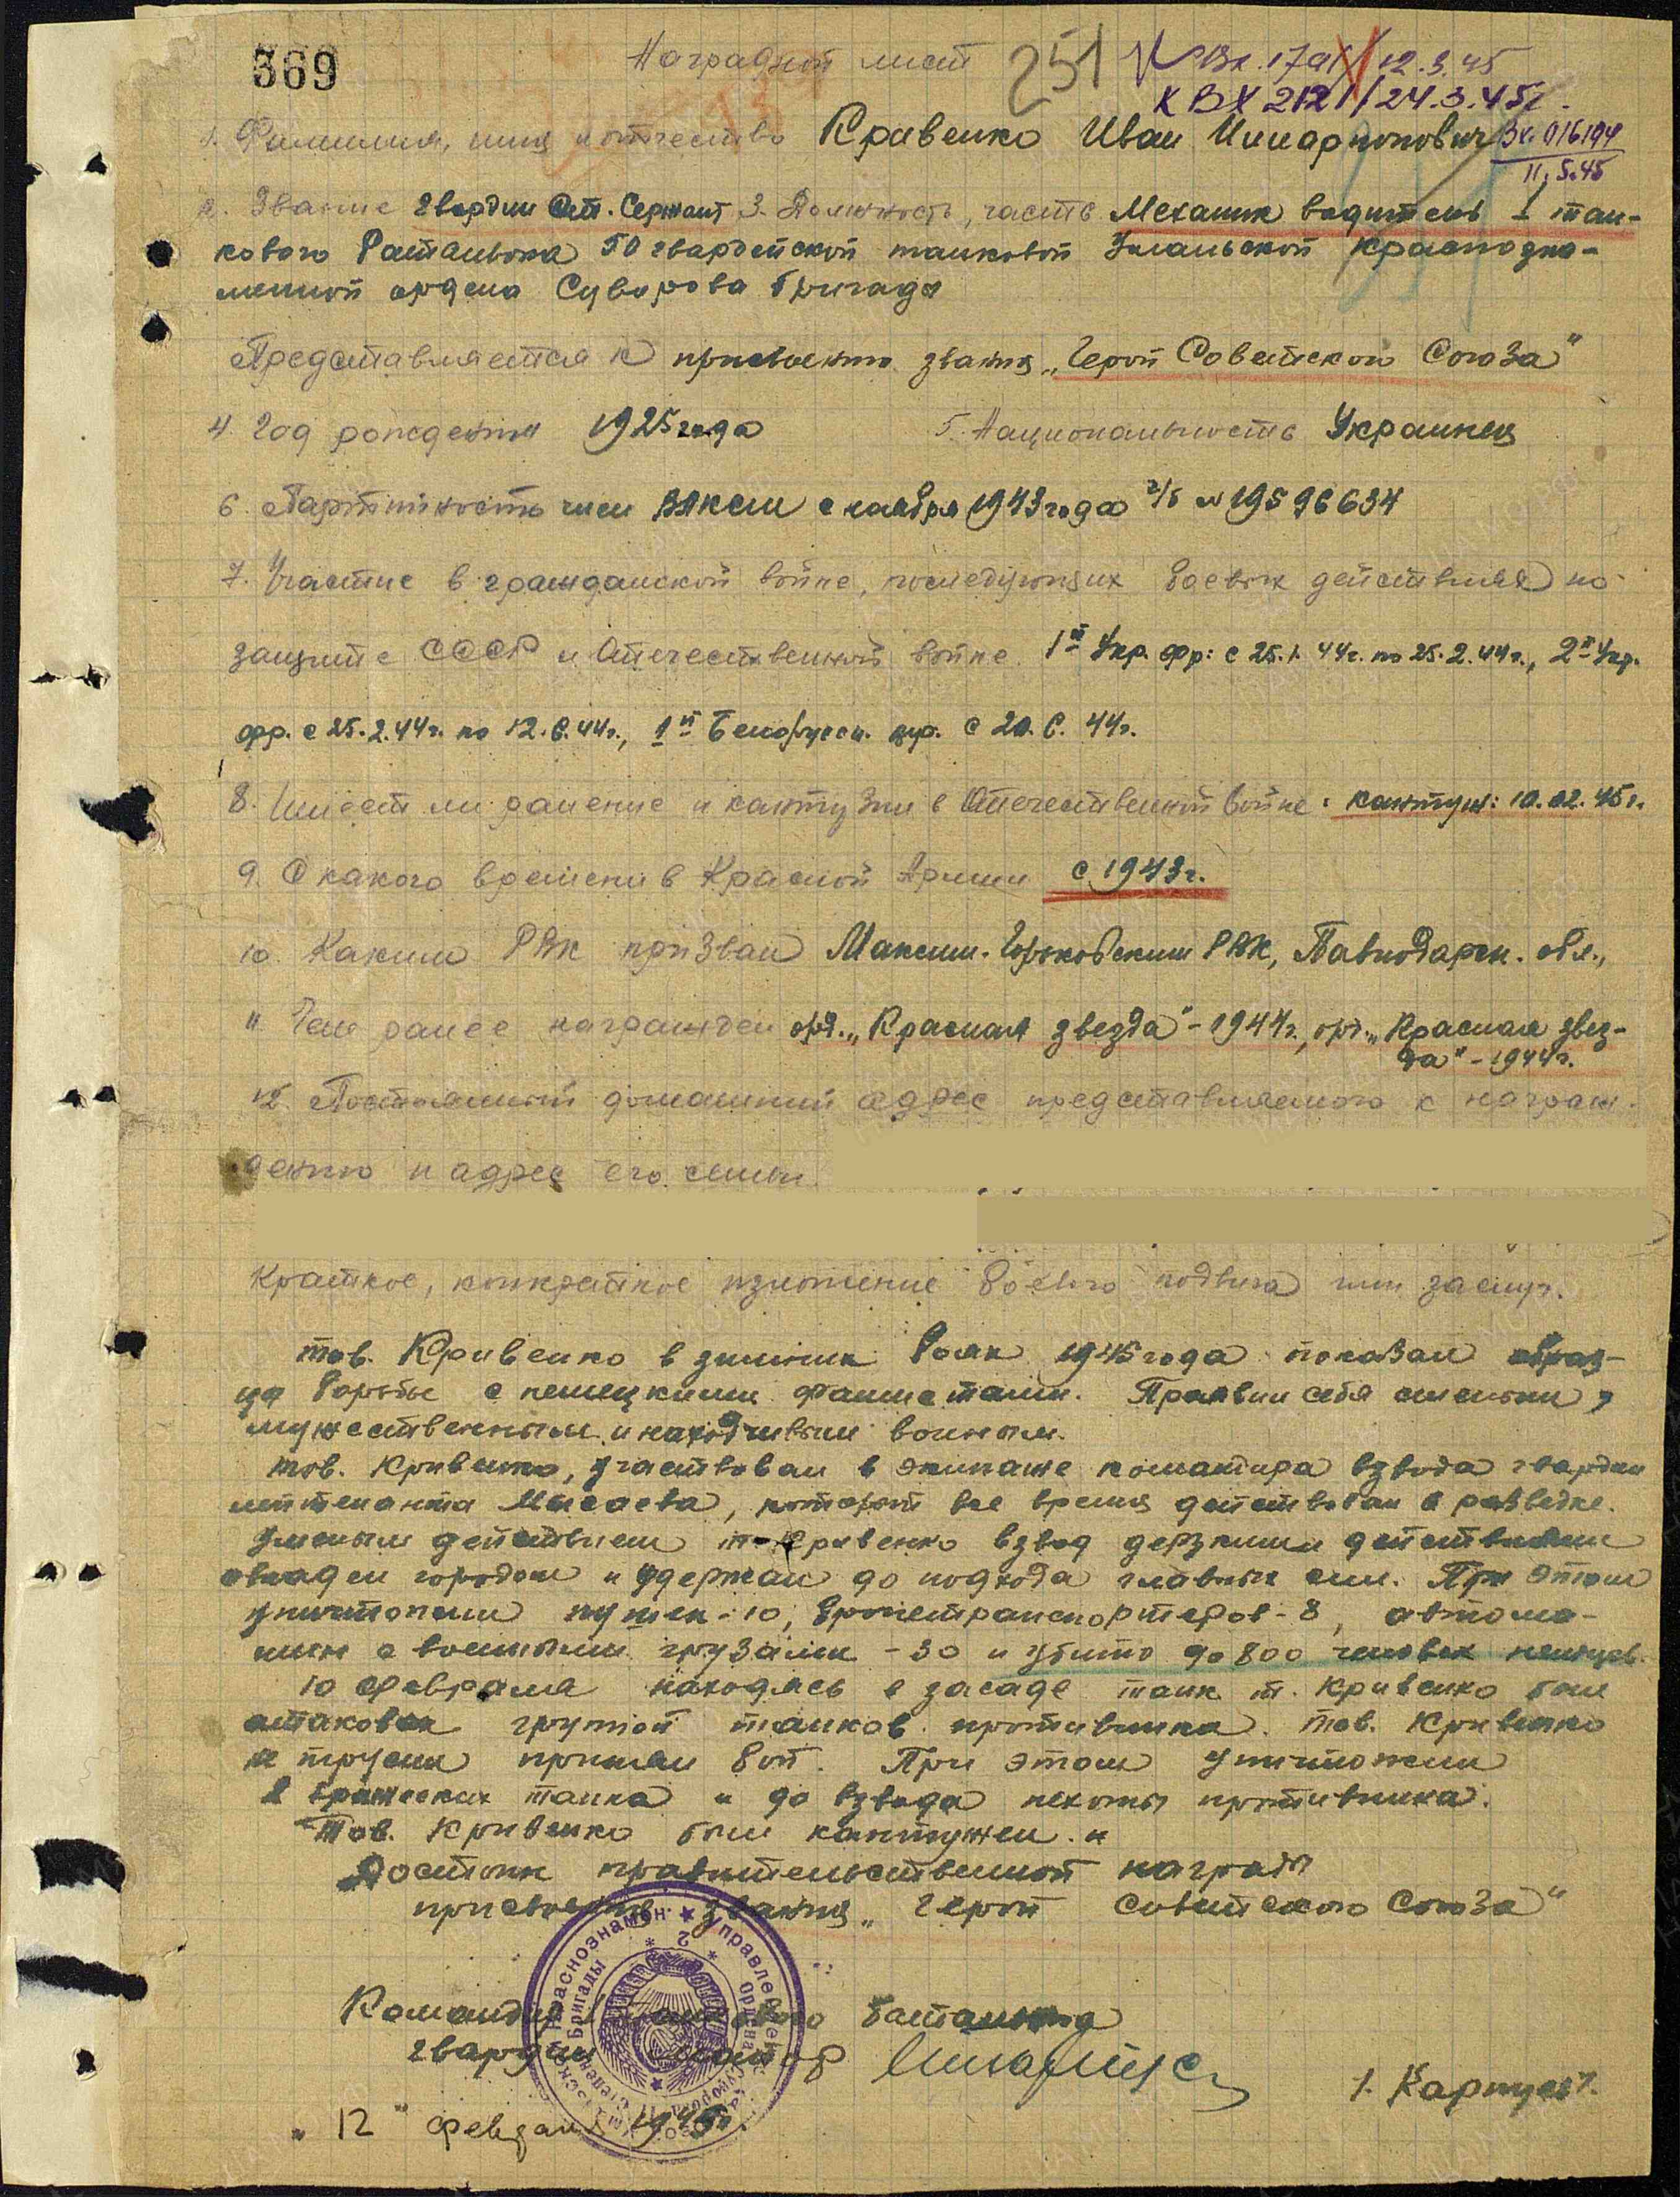 369
Наградной лист 251 Вх. 179 12.3.45
К ВХ 212 24.3.45г.
1. Фамилия, имя и отчество Кривенко Иван Илларионович Вх. 016194
11.5.45
2. Звание Гвардии Ст. Сержант 3. Должность, часть Механик водитель 1 тан-
кового батальона 50 гвардейской танковой Уманьской Краснозна-
менной ордена Суворова бригады
Представляется к присвоению звания „Герой Советского Союза"
4. Год рождения 1925 года 5. Национальность Украинец
6. Партийность член ВЛКСМ с ноября 1943 года ч/б № 19596634
7. Участие в гражданской войне, последующих боевых действиях по
защите СССР и Отечественной войне 1й Укр. фр: с 25.1.44г. по 25.2.44г., 2й Укр.
фр. с 25.2.44г. по 12.6.44г., 1й Белорусск. фр. с 20.6.44г.
8. Имеет ли ранение и контузии в Отечественной войне: контуж: 10.02.45г.
9. С какого времени в Красной Армии с 1943г.
10. Каким РВК призван Максим-Горьковским РВК, Павлодарск. обл.,
11. Чем ранее награжден орд. „Красная звезда" - 1944г., орд. „Красная звез-
да" - 1944г.
12. Постоянный домашний адрес представляемого к награж-
дению и адрес его семьи
Краткое, конкретное изложение боевого подвига или заслуг.
тов. Кривенко в зимних боях 1945 года показал образ-
цы борьбы с немецкими фашистами. Проявил себя смелым,
мужественным и находчивым воином.
тов. Кривенко, участвовал в экипаже командира взвода гвардии
лейтенанта Мысаева, который все время действовал в разведке.
Умелым действием т. Кривенко взвод дерзкими действиями
овладел городом и удержал до подхода главных сил. При этом
уничтожили пушек - 10, бронетранспортеров - 8, автома-
шин с военными грузами - 30 и убито до 800 человек немцев.
10 февраля находясь в засаде танк т. Кривенко был
атакован группой танков противника. тов. Кривенко
не труся принял бой. При этом уничтожил
2 вражеских танка и до взвода пехоты противника.
Тов. Кривенко был контужен. и
Достоин правительственной награды
присвоение звания „Герой Советского Союза"
Командир танкового батальона
гвардии майор
1. Картузов.
„12" февраля 1945г
Управление Краснознамен. Бригады Ордена Суворова